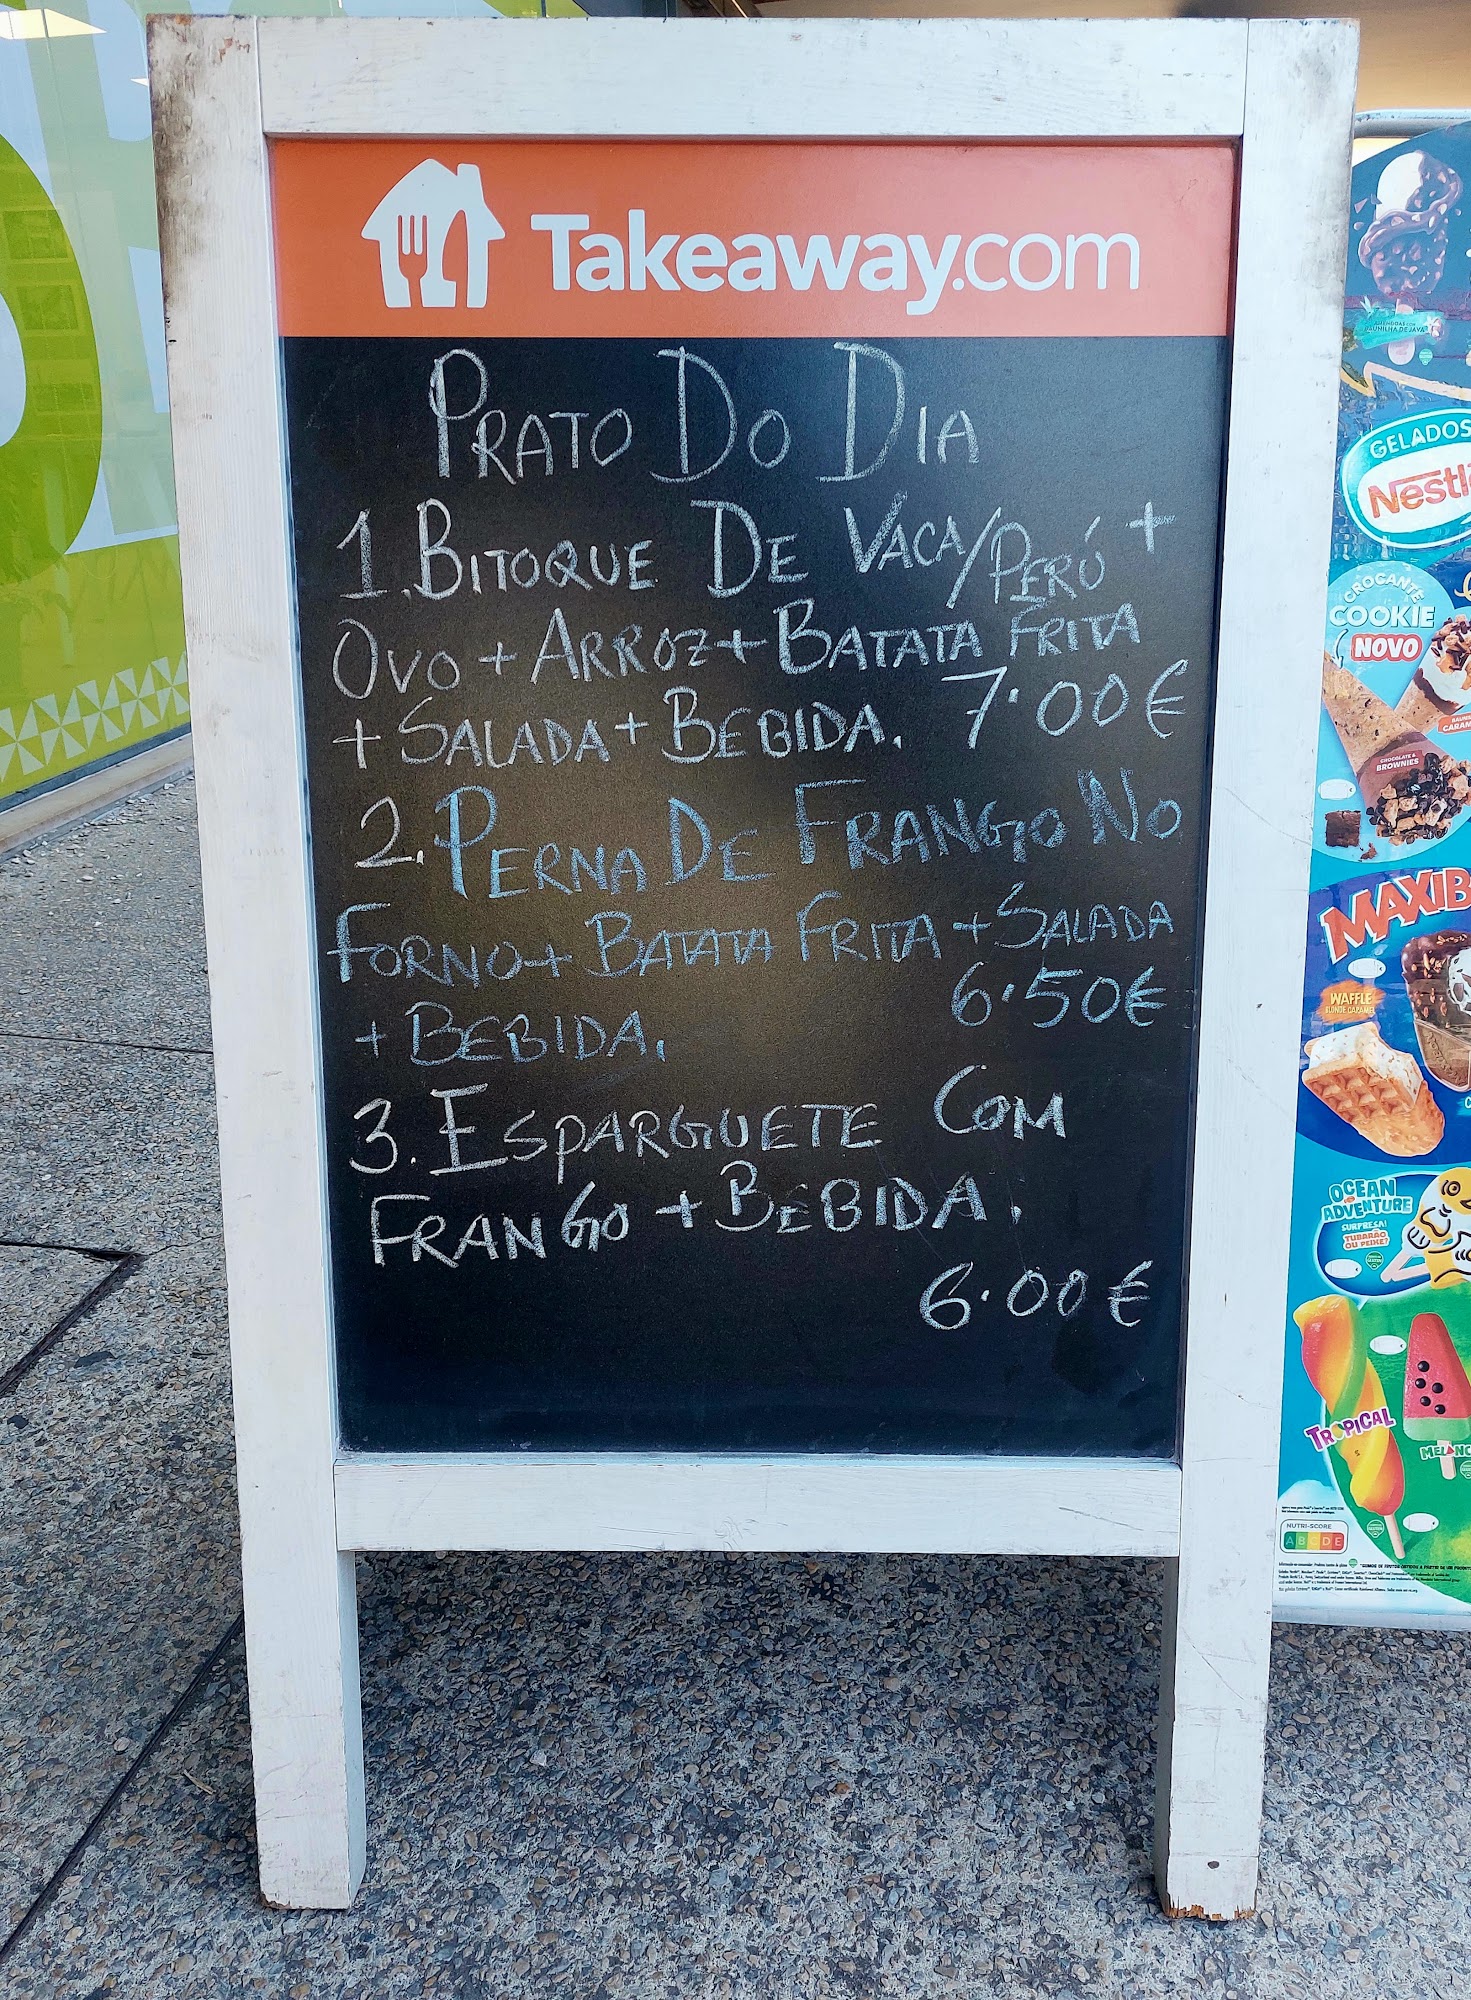 Takeaway.com
PRATO DO DIA
1. BITOQUE DE VACA/PERÚ +
OVO + ARROZ + BATATA FRITA
+ SALADA + BEBIDA. 7.00€
2. PERNA DE FRANGO NO
FORNO + BATATA FRITA + SALADA
+ BEBIDA. 6.50€
3. ESPARGUETE COM
FRANGO + BEBIDA.
6.00€
BAUNILHA DE JAVA
GELADOS
Nestl
CROCANTE
COOKIE
NOVO
CHOCOLATE &
BROWNIES
MAXIB
WAFFLE
BLONDE CARAMEL
OCEAN
ADVENTURE
SURPRESA!
TUBARÃO
OU PEIXE?
TROPICAL
MELANC
NUTRI-SCORE
A B C D E